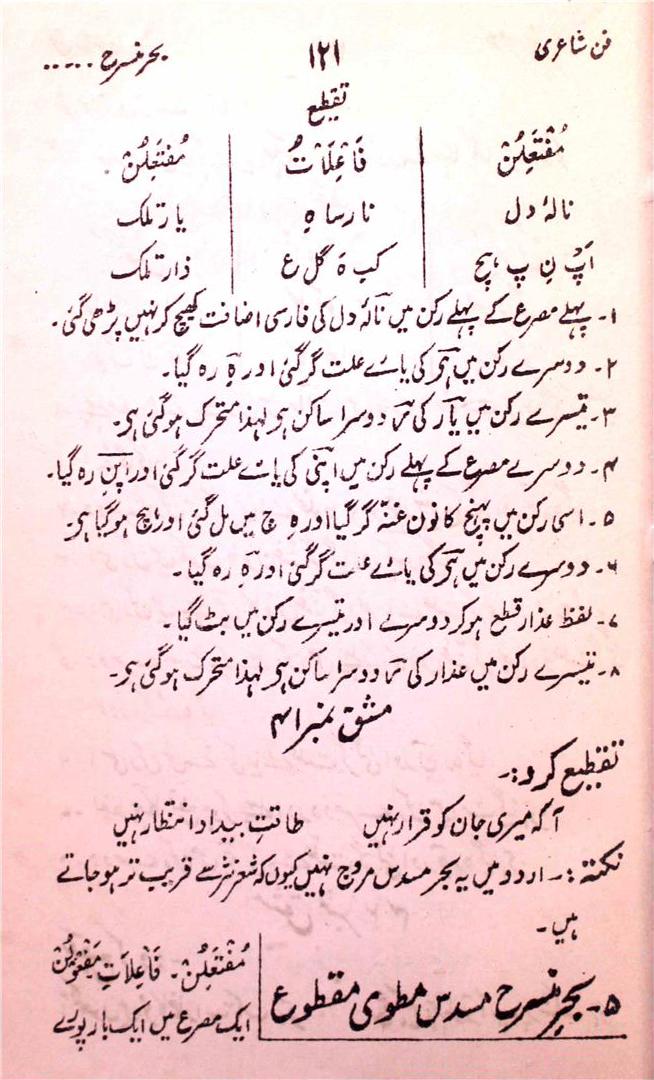 فن شاعری ۱۲۱ بحر منسرح .....
تقطیع
مُفْتَعِلُنْ فَاعِلَاتُ مُفْتَعِلُنْ
نالۂ دل نارساہِ یار تلک
اَپْ نِ پ ہیچ کب ہَ گل ع ذار تلک
۱۔ پہلے مصرع کے پہلے رکن میں نالۂ دل کی فارسی اضافت کھینچ کر نہیں پڑھی گئی۔
۲۔ دوسرے رکن میں ہے کی یائے علت گر گئی اور ہِ رہ گیا۔
۳۔ تیسرے رکن میں یار کی ر دوسرا ساکن ہے لہذا متحرک ہو گئی ہے۔
۴۔ دوسرے مصرع کے پہلے رکن میں اپنی کی یائے علت گر گئی اور اپنِ رہ گیا۔
۵۔ اسی رکن میں پہنچ کا نون غنہ گر گیا اور ہِ چ میں مل گئی اور ہچ ہو گیا ہے۔
۶۔ دوسرے رکن میں ہے کی یائے علت گر گئی اور ہَ رہ گیا۔
۷۔ لفظ عذار قطع ہو کر دوسرے اور تیسرے رکن میں بٹ گیا۔
۸۔ تیسرے رکن میں عذار کی ر دوسرا ساکن ہے لہذا متحرک ہو گئی ہے۔
مشق نمبر ۴۱
تقطیع کرو:۔
آ کہ میری جان کو قرار نہیں طاقتِ بیداد انتظار نہیں
نکتہ:۔ اردو میں یہ بحر مسدس مروج نہیں کیوں کہ شعر نثر سے قریب تر ہو جاتے
ہیں۔
۵۔ بحرِ منسرح مسدس مطوی مقطوع
مُفْتَعِلُنْ۔ فَاعِلَاتُ مَفْعُوْلُنْ
ایک مصرع میں ایک بار پورے